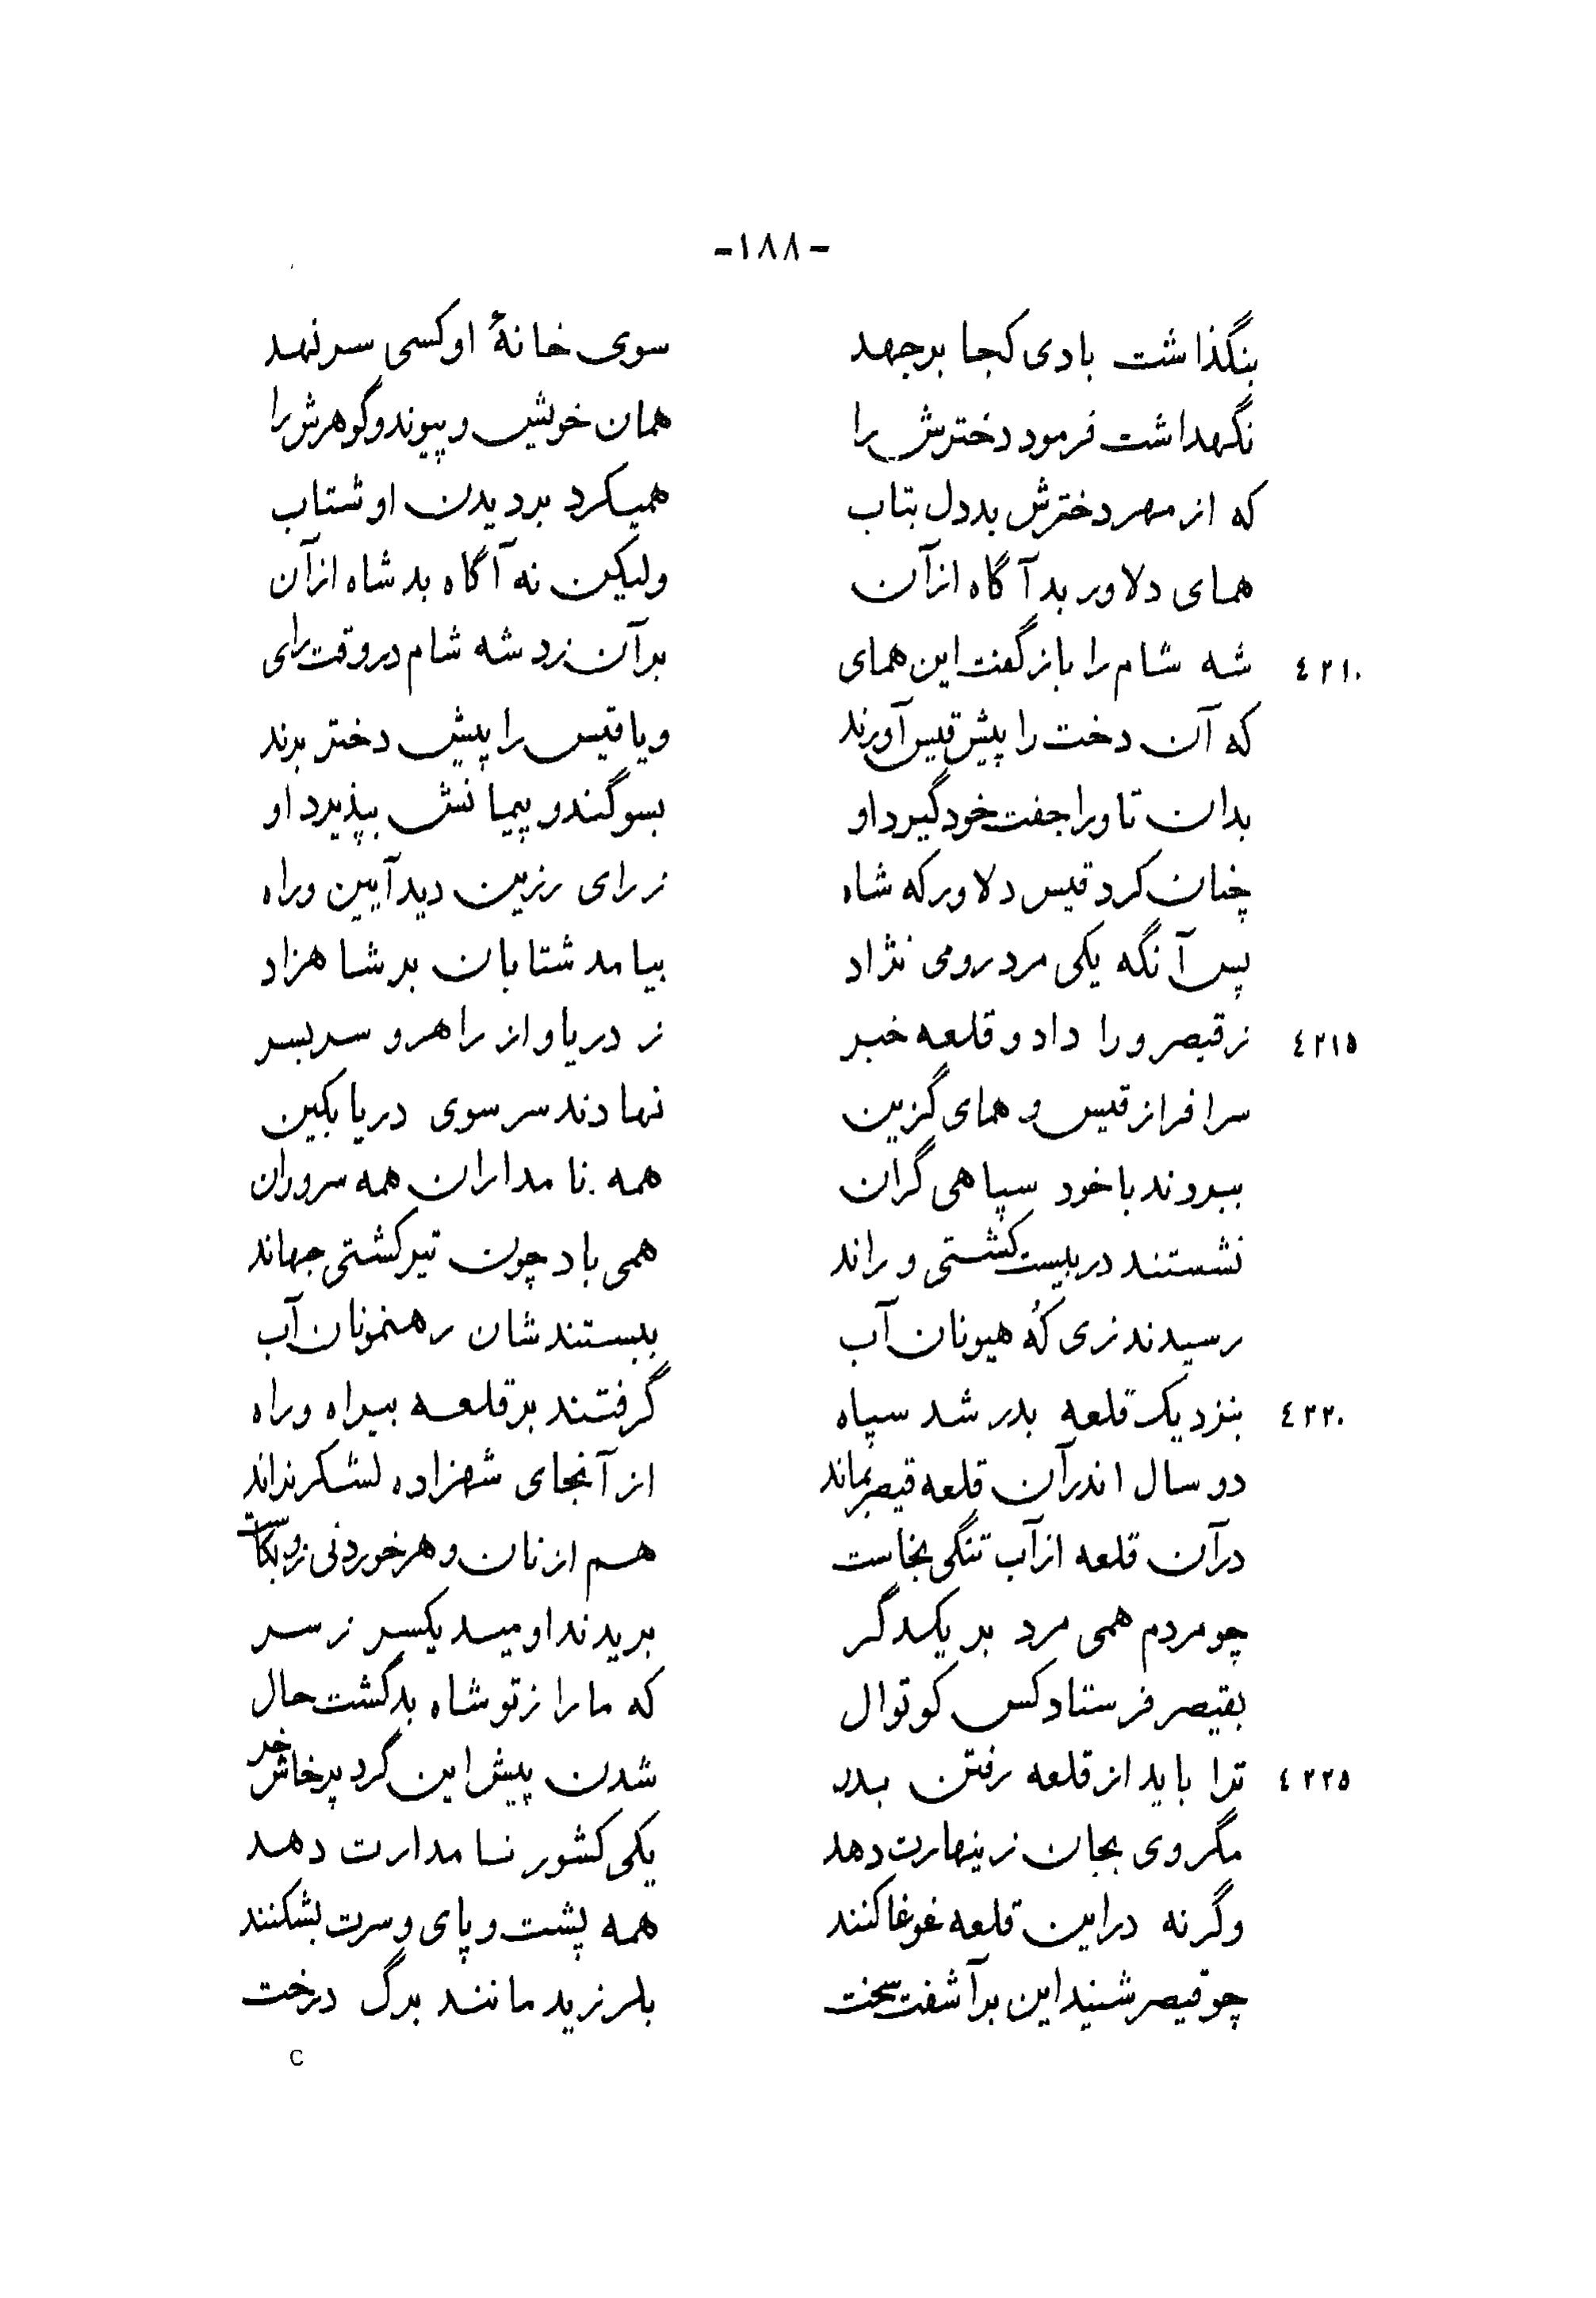 -۱۸۸-
بنگذاشت بادی کجا برجهد سوی خانهٔ او کسی سر نهد
نگهداشت فرمود دخترش را همان خویش و پیوند و گوهرش را
که از مهر دخترش بد دل بتاب همیکرد بر دیدن او شتاب
همای دلاور بد آگاه از آن ولیکن نه آگاه بد شاه از آن
۴۲۱۰ شه شام را باز گفت این همای بر آن زد شه شام در وقت رای
که آن دخت را پیش قیس آورند و یا قیس را پیش دختر برند
بدان تا ورا جفت خود گیرد او بسوگند و پیمانش بپذیرد او
چنان کرد قیس دلاور که شاه ز رای رزین دید آیین و راه
پس آنگه یکی مرد رومی نژاد بیامد شتابان بر شاهزاد
۴۲۱۵ ز قیصر ورا داد و قلعه خبر ز دریا و از راهرو سربسر
سرافراز قیس و همای گزین نهادند سر سوی دریا بکین
ببردند با خود سپاهی گران همه نامداران همه سروران
نشستند در بیست کشتی و راند همی باد چون تیر کشتی جهاند
رسیدند زی که هیونان آب ببستندشان رهنمونان آب
۴۲۲۰ بنزدیک قلعه بدر شد سپاه گرفتند بر قلعه بیراه و راه
دو سال اندر آن قلعه قیصر بماند از آنجای شهزاده لشکر نراند
در آن قلعه از آب تنگی بخاست هم از نان و هر خوردنی زو بکاست
چو مردم همی مرد بر یکدگر بریدند اومید یکسر ز سر
بقیصر فرستاد کس کوتوال که ما را ز تو شاه بد گشت حال
۴۲۲۵ ترا باید از قلعه رفتن بدر شدن پیش این گرد پرخاش خر
مگر وی بجان زینهارت دهد یکی کشور نامدارت دهد
وگرنه در این قلعه غوغا کنند همه پشت و پای و سرت بشکنند
چو قیصر شنید این برآشفت سخت بلرزید مانند برگ درخت
C